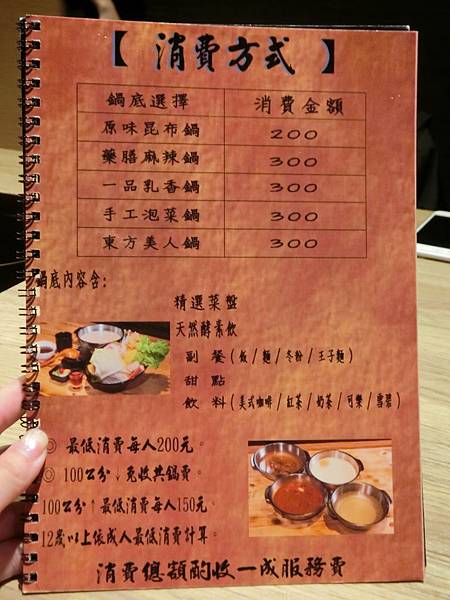 【 消費方式 】
鍋底選擇 消費金額
原味昆布鍋 200
藥膳麻辣鍋 300
一品乳香鍋 300
手工泡菜鍋 300
東方美人鍋 300
鍋底內容含:
精選菜盤
天然酵素飲
副 餐(飯/麵/冬粉/王子麵)
甜 點
飲 料(美式咖啡/紅茶/奶茶/可樂/雪碧)
◎ 最低消費每人200元。
◎ 100公分↓免收共鍋費。
100公分↑最低消費每人150元。
12歲以上依成人最低消費計算。
消費總額酌收一成服務費